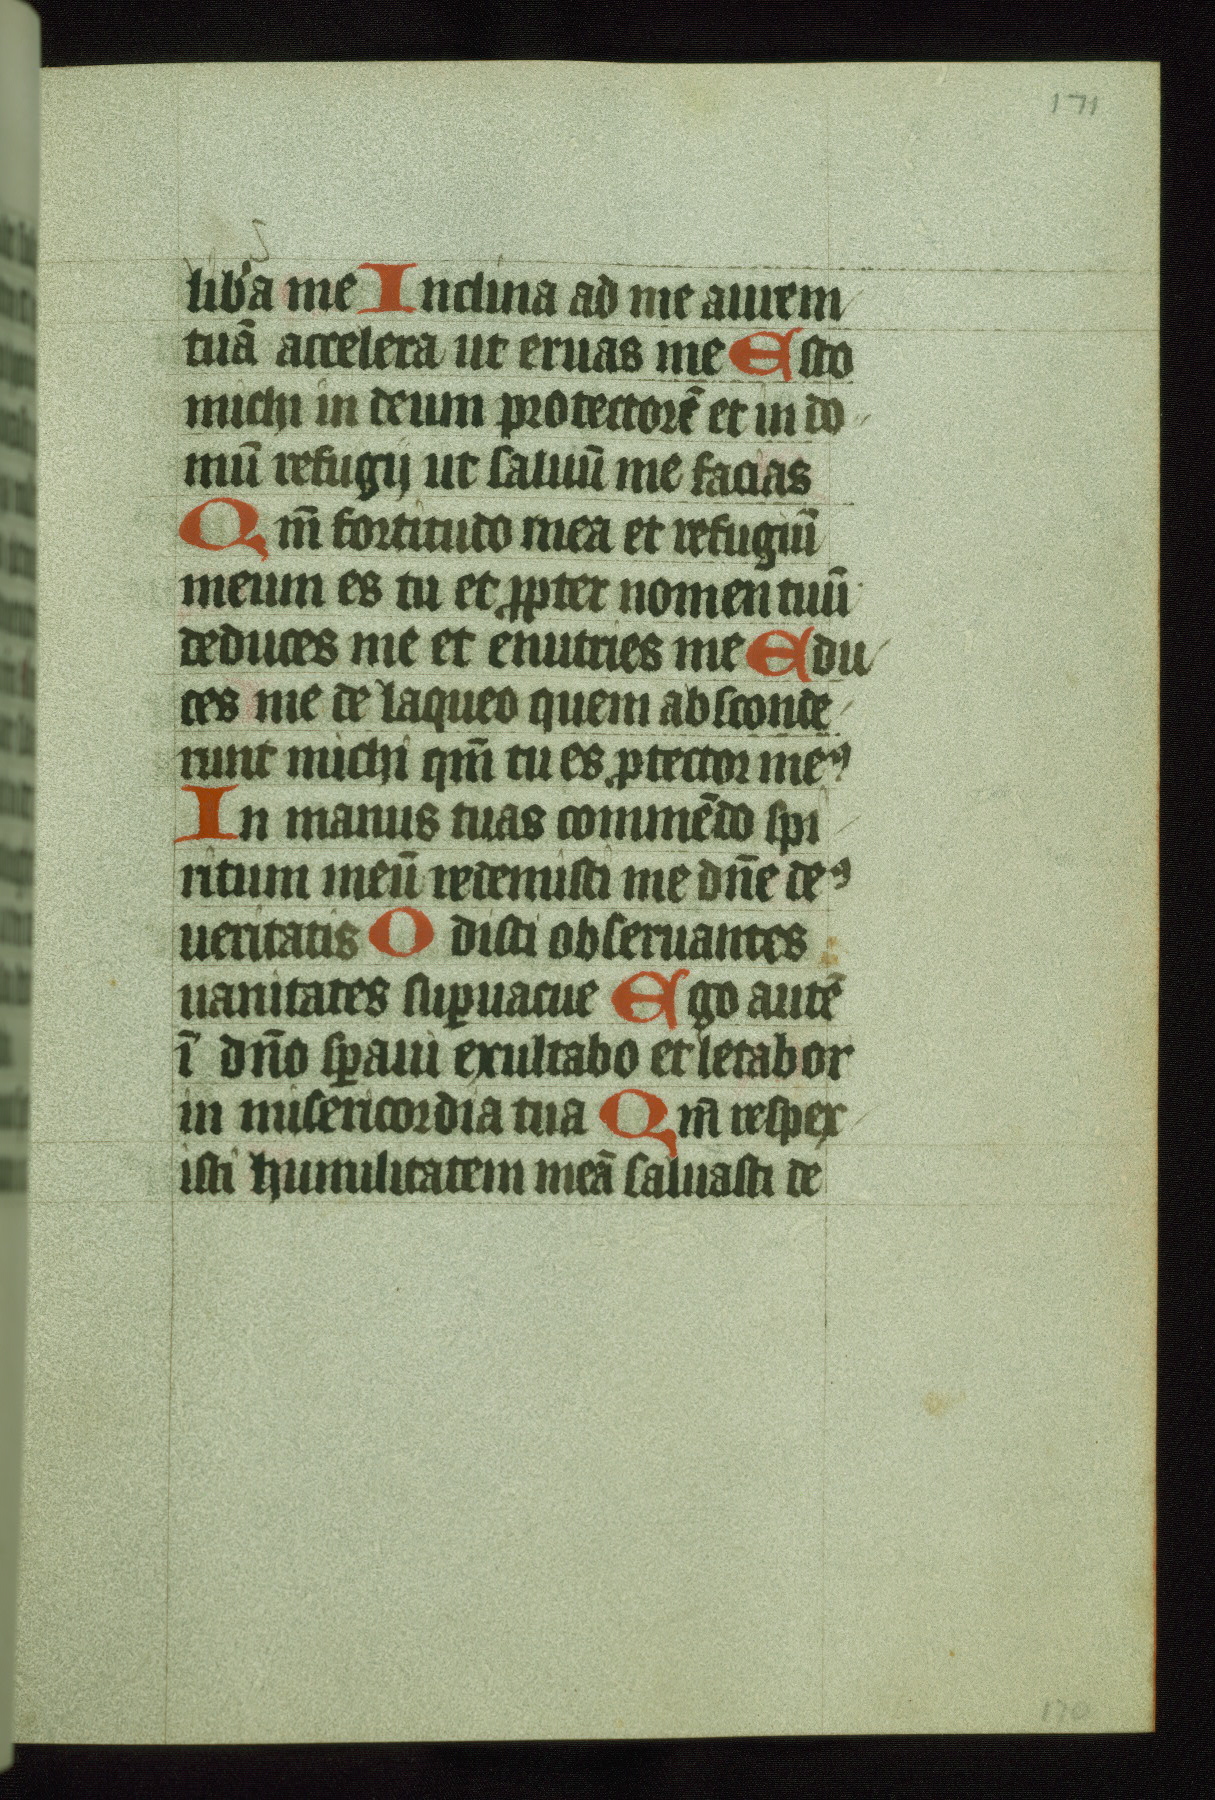 171
lib'a me Inclina ad me aurem
tuā accelera ut eruas me Esto
michi in deum protectorē et in do
mū refugij ut saluū me facias
Qm̄ fortitudo mea et refugiū
meum es tu et ꝓpter nomen tuū
deduces me et enutries me Edu
ces me de laqueo quem absconde
runt michi qm̄ tu es ꝓtector meꝰ
In manus tuas commēdo spi
ritum meū redemisti me dn̄e deꝰ
ueritatis Odisti obseruantes
uanitates suꝑuacue Ego autē
ī dn̄o sꝑaui exultabo et letabor
in misericordia tua Qm̄ respex
isti humilitatem meā saluasti de
170